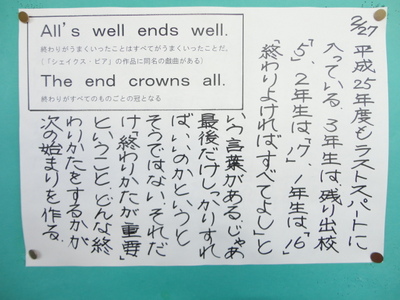 2/27 平成25年度もラストスパートに
入っている。3年生は、残り出校
「5」、2年生は、「17」、1年生は、「16」
「終りよければ、すべてよし」と
いう言葉がある。じゃあ
最後だけしっかりすれ
ば、いいのかというと
そうではない。それだ
け「終わりかたが重要」
ということ、どんな終
わりかたをするかが
次の始まりを作る。
All's well ends well.
終わりがうまくいったことはすべてがうまくいったことだ。
(「シェイクス・ピア」の作品に同名の戯曲がある)
The end crowns all.
終わりがすべてのものごとの冠となる